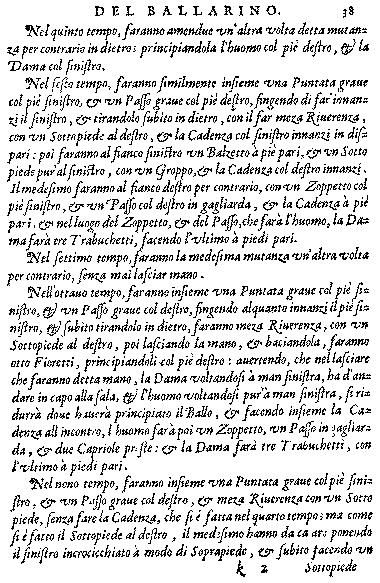 DEL BALLARINO. 38
Nel quinto tempo, faranno amendue vn'altra volta detta mutan-
za per contrario in dietro; principiandola l'huomo col piè destro, & la
Dama col sinistro.
Nel sesto tempo, faranno similmente insieme vna Puntata graue
col piè sinistro, & vn Passo graue col piè destro, fingendo di far'innan-
zi il sinistro, & tirandolo subito in dietro, con il far meza Riuerenza,
con vn Sottopiede al destro, & la Cadenza col sinistro innanzi in dis-
pari: poi faranno al fianco sinistro vn Balzetto à piè pari, & vn Sotto
piede pur'al sinistro, con vn Groppo, & la Cadenza col destro innanzi.
Il medesimo faranno al fianco destro per contrario, con vn Zoppetto col
piè sinistro, & vn Passo col destro in gagliarda, & la Cadenza à piè
pari. & nel luogo del Zoppetto, & del Passo, che farà l'huomo, la Da-
ma farà tre Trabuchetti, facendo l'vltimo à piedi pari.
Nel settimo tempo, faranno la medesima mutanza vn'altra volta
per contrario, senza mai lasciar mano.
Nell'ottauo tempo, faranno insieme vna Puntata graue col piè si-
nistro, & vn Passo graue col destro, fingendo alquanto innanzi il piè si-
nistro, & subito tirandolo in dietro, faranno meza Riuerenza, con vn
Sottopiede al destro, poi lasciando la mano, & baciandola, faranno
otto Fioretti, principiandoli col piè destro: auertendo, che nel lasciare
che faranno detta mano, la Dama voltandosi à man sinistra, ha d'an-
dare in capo alla sala, & l'huomo voltandosi pur'à man sinistra, si ri-
durrà doue hauerà principiato il Ballo, & facendo insieme la Ca-
denza all'incontro, l'huomo farà poi vn Zoppetto, vn Passo in gagliar-
da, & due Capriole preste: & la Dama farà tre Trabuchetti, con
l'vltimo à piedi pari.
Nel nono tempo, faranno insieme vna Puntata graue col piè sini-
stro, & vn Passo graue col destro, & meza Riuerenza con vn Sotto
piede, senza fare la Cadenza, che si è fatta nel quarto tempo; ma come
si è fatto il Sottopiede al destro, il medesimo hanno da far ponendo
il sinistro incrocicchiato à modo di Soprapiede, & subito facendo vn
k 2 Sottopiede